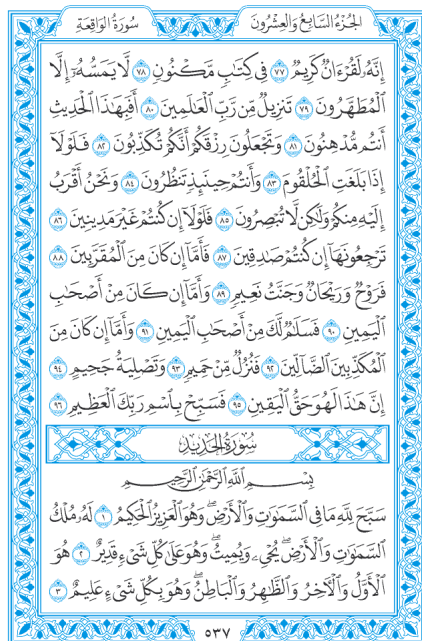 الجُزْءُ السَّابِعُ وَالعِشْرُونَ سُورَةُ الوَاقِعَةِ
إِنَّهُۥ لَقُرْءَانٌ كَرِيمٌ ٧٧ فِي كِتَٰبٍ مَّكْنُونٍ ٧٨ لَّا يَمَسُّهُۥٓ إِلَّا
ٱلْمُطَهَّرُونَ ٧٩ تَنزِيلٌ مِّن رَّبِّ ٱلْعَٰلَمِينَ ٨٠ أَفَبِهَٰذَا ٱلْحَدِيثِ
أَنتُم مُّدْهِنُونَ ٨١ وَتَجْعَلُونَ رِزْقَكُمْ أَنَّكُمْ تُكَذِّبُونَ ٨٢ فَلَوْلَآ
إِذَا بَلَغَتِ ٱلْحُلْقُومَ ٨٣ وَأَنتُمْ حِينَئِذٍ تَنظُرُونَ ٨٤ وَنَحْنُ أَقْرَبُ
إِلَيْهِ مِنكُمْ وَلَٰكِن لَّا تُبْصِرُونَ ٨٥ فَلَوْلَآ إِن كُنتُمْ غَيْرَ مَدِينِينَ ٨٦
تَرْجِعُونَهَآ إِن كُنتُمْ صَٰدِقِينَ ٨٧ فَأَمَّآ إِن كَانَ مِنَ ٱلْمُقَرَّبِينَ ٨٨
فَرَوْحٌ وَرَيْحَانٌ وَجَنَّتُ نَعِيمٍ ٨٩ وَأَمَّآ إِن كَانَ مِنْ أَصْحَٰبِ
ٱلْيَمِينِ ٩٠ فَسَلَٰمٌ لَّكَ مِنْ أَصْحَٰبِ ٱلْيَمِينِ ٩١ وَأَمَّآ إِن كَانَ مِنَ
ٱلْمُكَذِّبِينَ ٱلضَّآلِّينَ ٩٢ فَنُزُلٌ مِّنْ حَمِيمٍ ٩٣ وَتَصْلِيَةُ جَحِيمٍ ٩٤
إِنَّ هَٰذَا لَهُوَ حَقُّ ٱلْيَقِينِ ٩٥ فَسَبِّحْ بِٱسْمِ رَبِّكَ ٱلْعَظِيمِ ٩٦
سُورَةُ الحَدِيدِ
بِسْمِ ٱللَّهِ ٱلرَّحْمَٰنِ ٱلرَّحِيمِ
سَبَّحَ لِلَّهِ مَا فِي ٱلسَّمَٰوَٰتِ وَٱلْأَرْضِۖ وَهُوَ ٱلْعَزِيزُ ٱلْحَكِيمُ ١ لَهُۥ مُلْكُ
ٱلسَّمَٰوَٰتِ وَٱلْأَرْضِۖ يُحْيِۦ وَيُمِيتُۖ وَهُوَ عَلَىٰ كُلِّ شَيْءٍ قَدِيرٌ ٢ هُوَ
ٱلْأَوَّلُ وَٱلْءَاخِرُ وَٱلظَّٰهِرُ وَٱلْبَاطِنُۖ وَهُوَ بِكُلِّ شَيْءٍ عَلِيمٌ ٣
٥٣٧